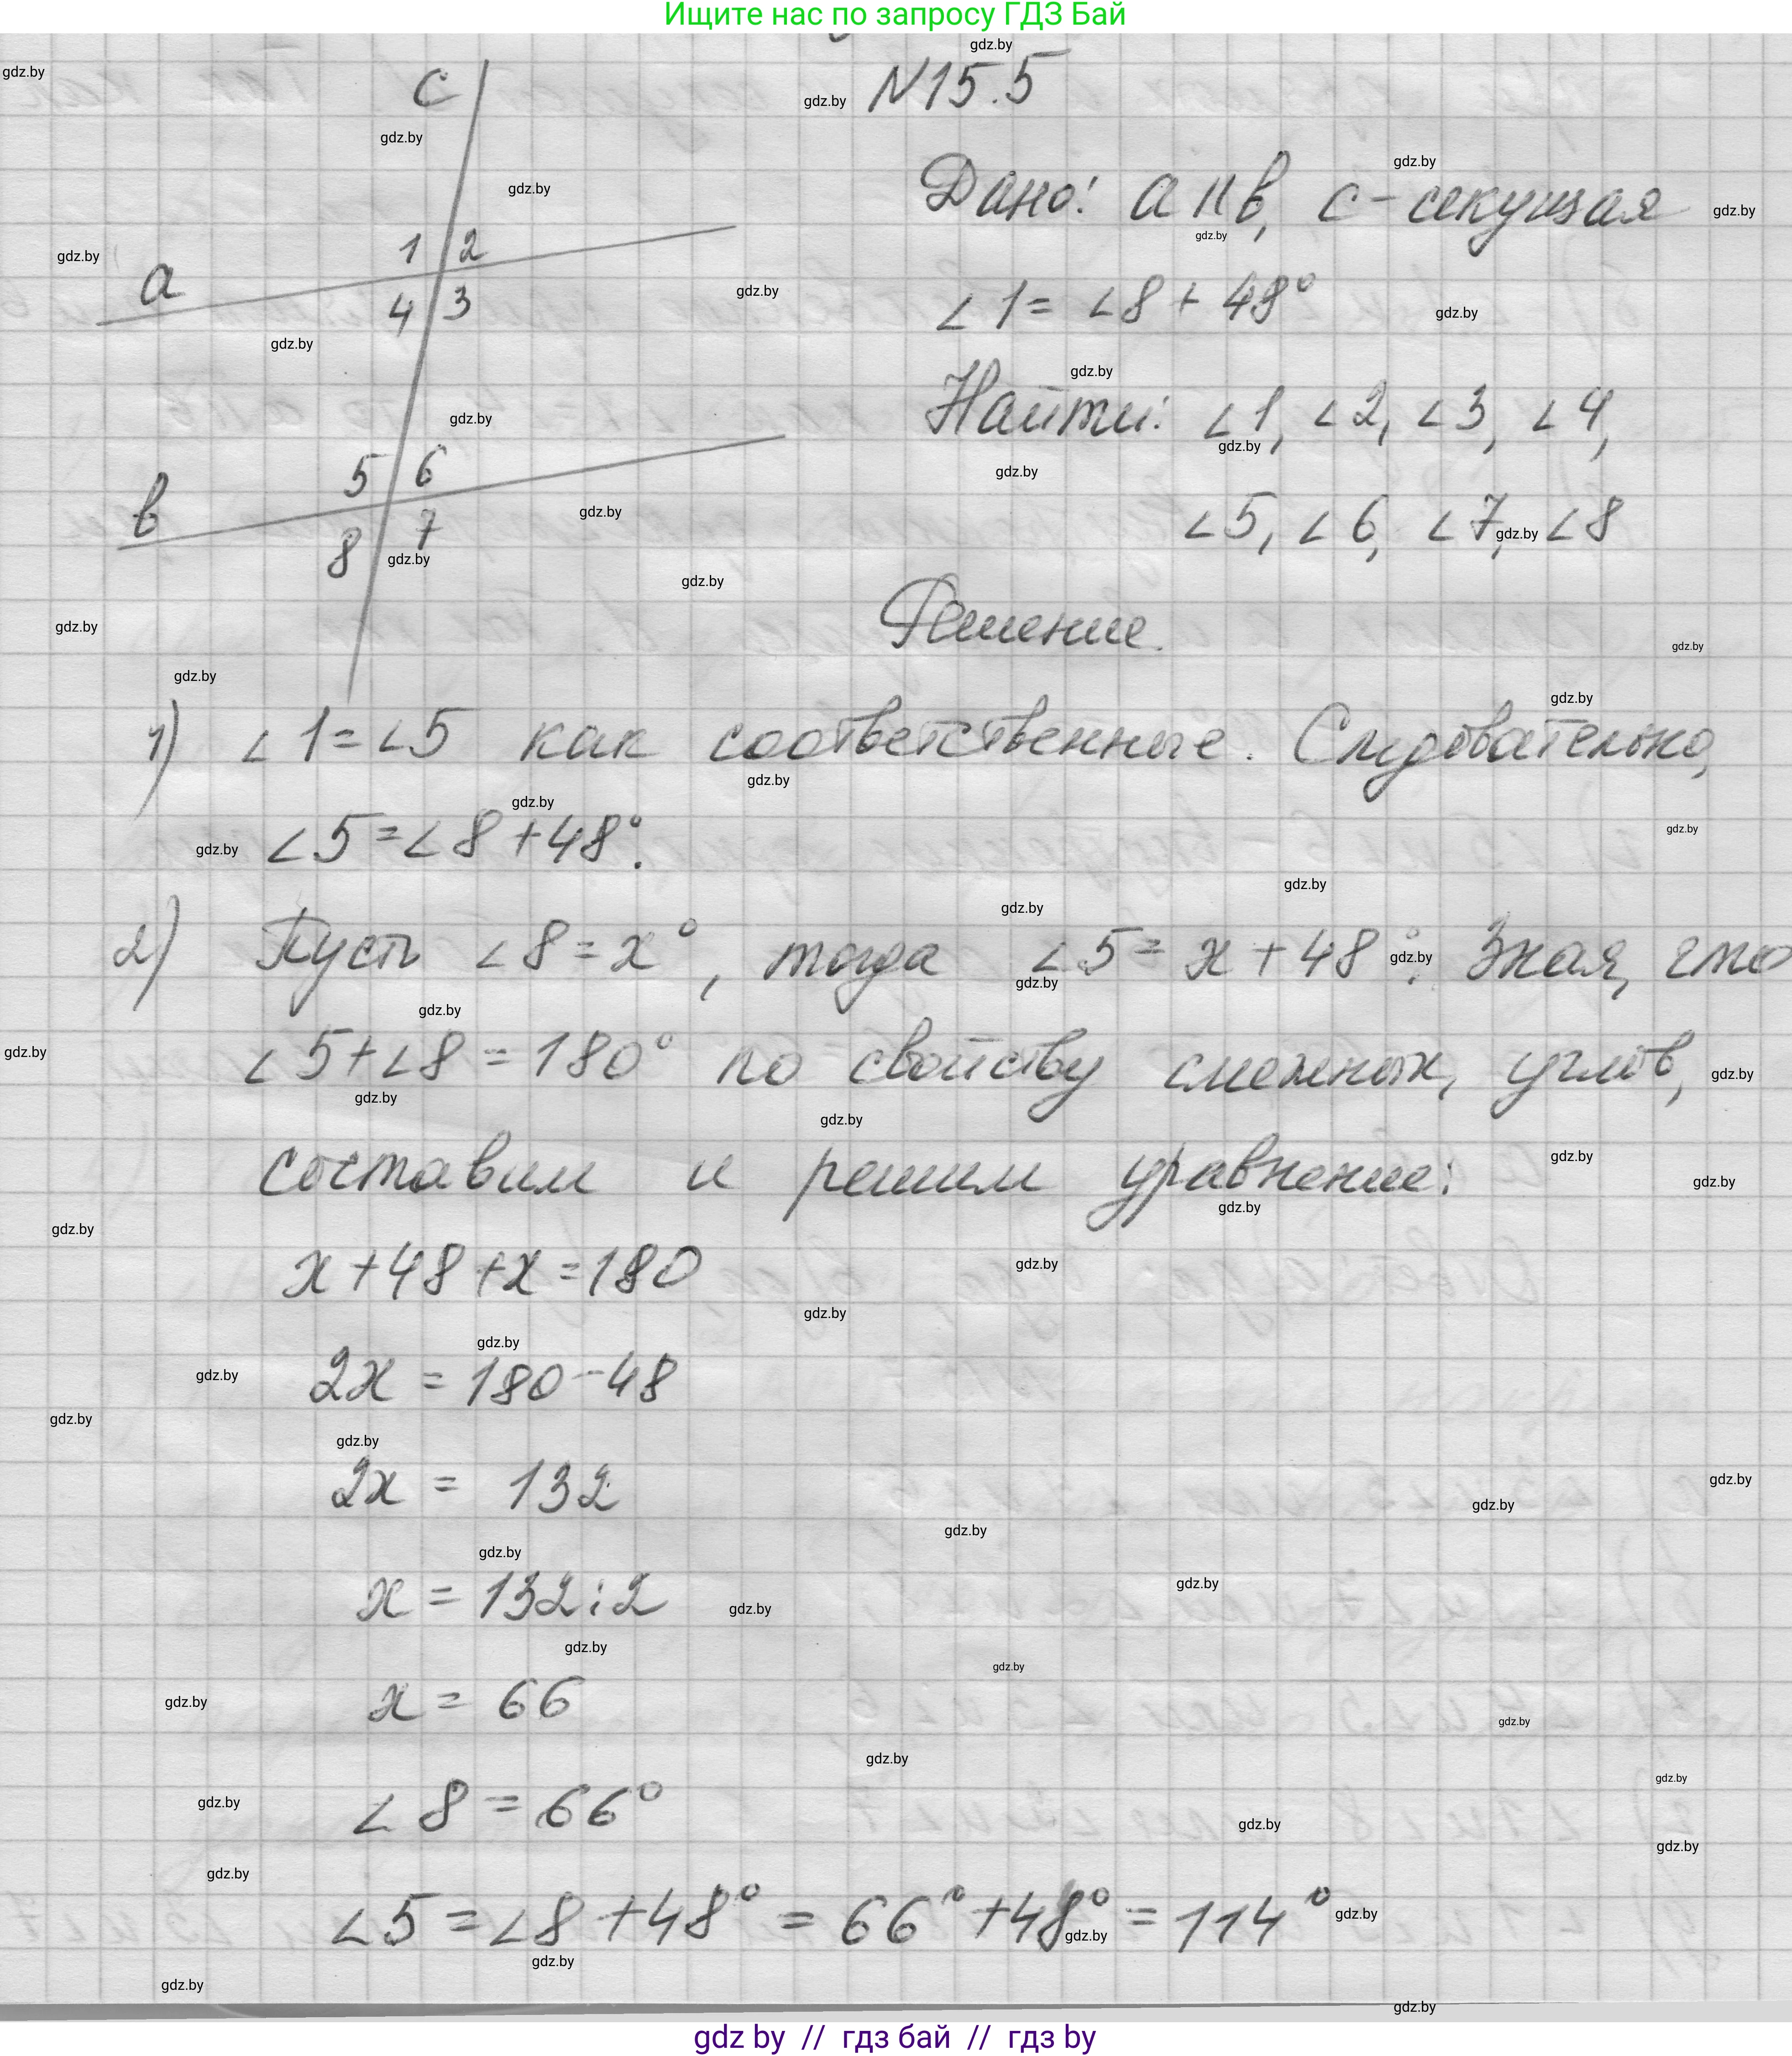 Ищите нас по запросу ГДЗ Бай
N15.5
c
Дано: a || в, c - секущая
1 2
a
4 3
∠1 = ∠8 + 48°
Найти: ∠1, ∠2, ∠3, ∠4,
5 6
в
8 7
∠5, ∠6, ∠7, ∠8
Решение.
1) ∠1 = ∠5 как соответственные. Следовательно,
∠5 = ∠8 + 48°.
2) Пусть ∠8 = x°, тогда ∠5 = x + 48°. Зная, что
∠5 + ∠8 = 180° по свойству смежных, углов,
составим и решим уравнение:
x + 48 + x = 180
2x = 180 - 48
2x = 132
x = 132 : 2
x = 66
∠8 = 66°
∠5 = ∠8 + 48° = 66° + 48° = 114°
gdz by // гдз бай // гдз by